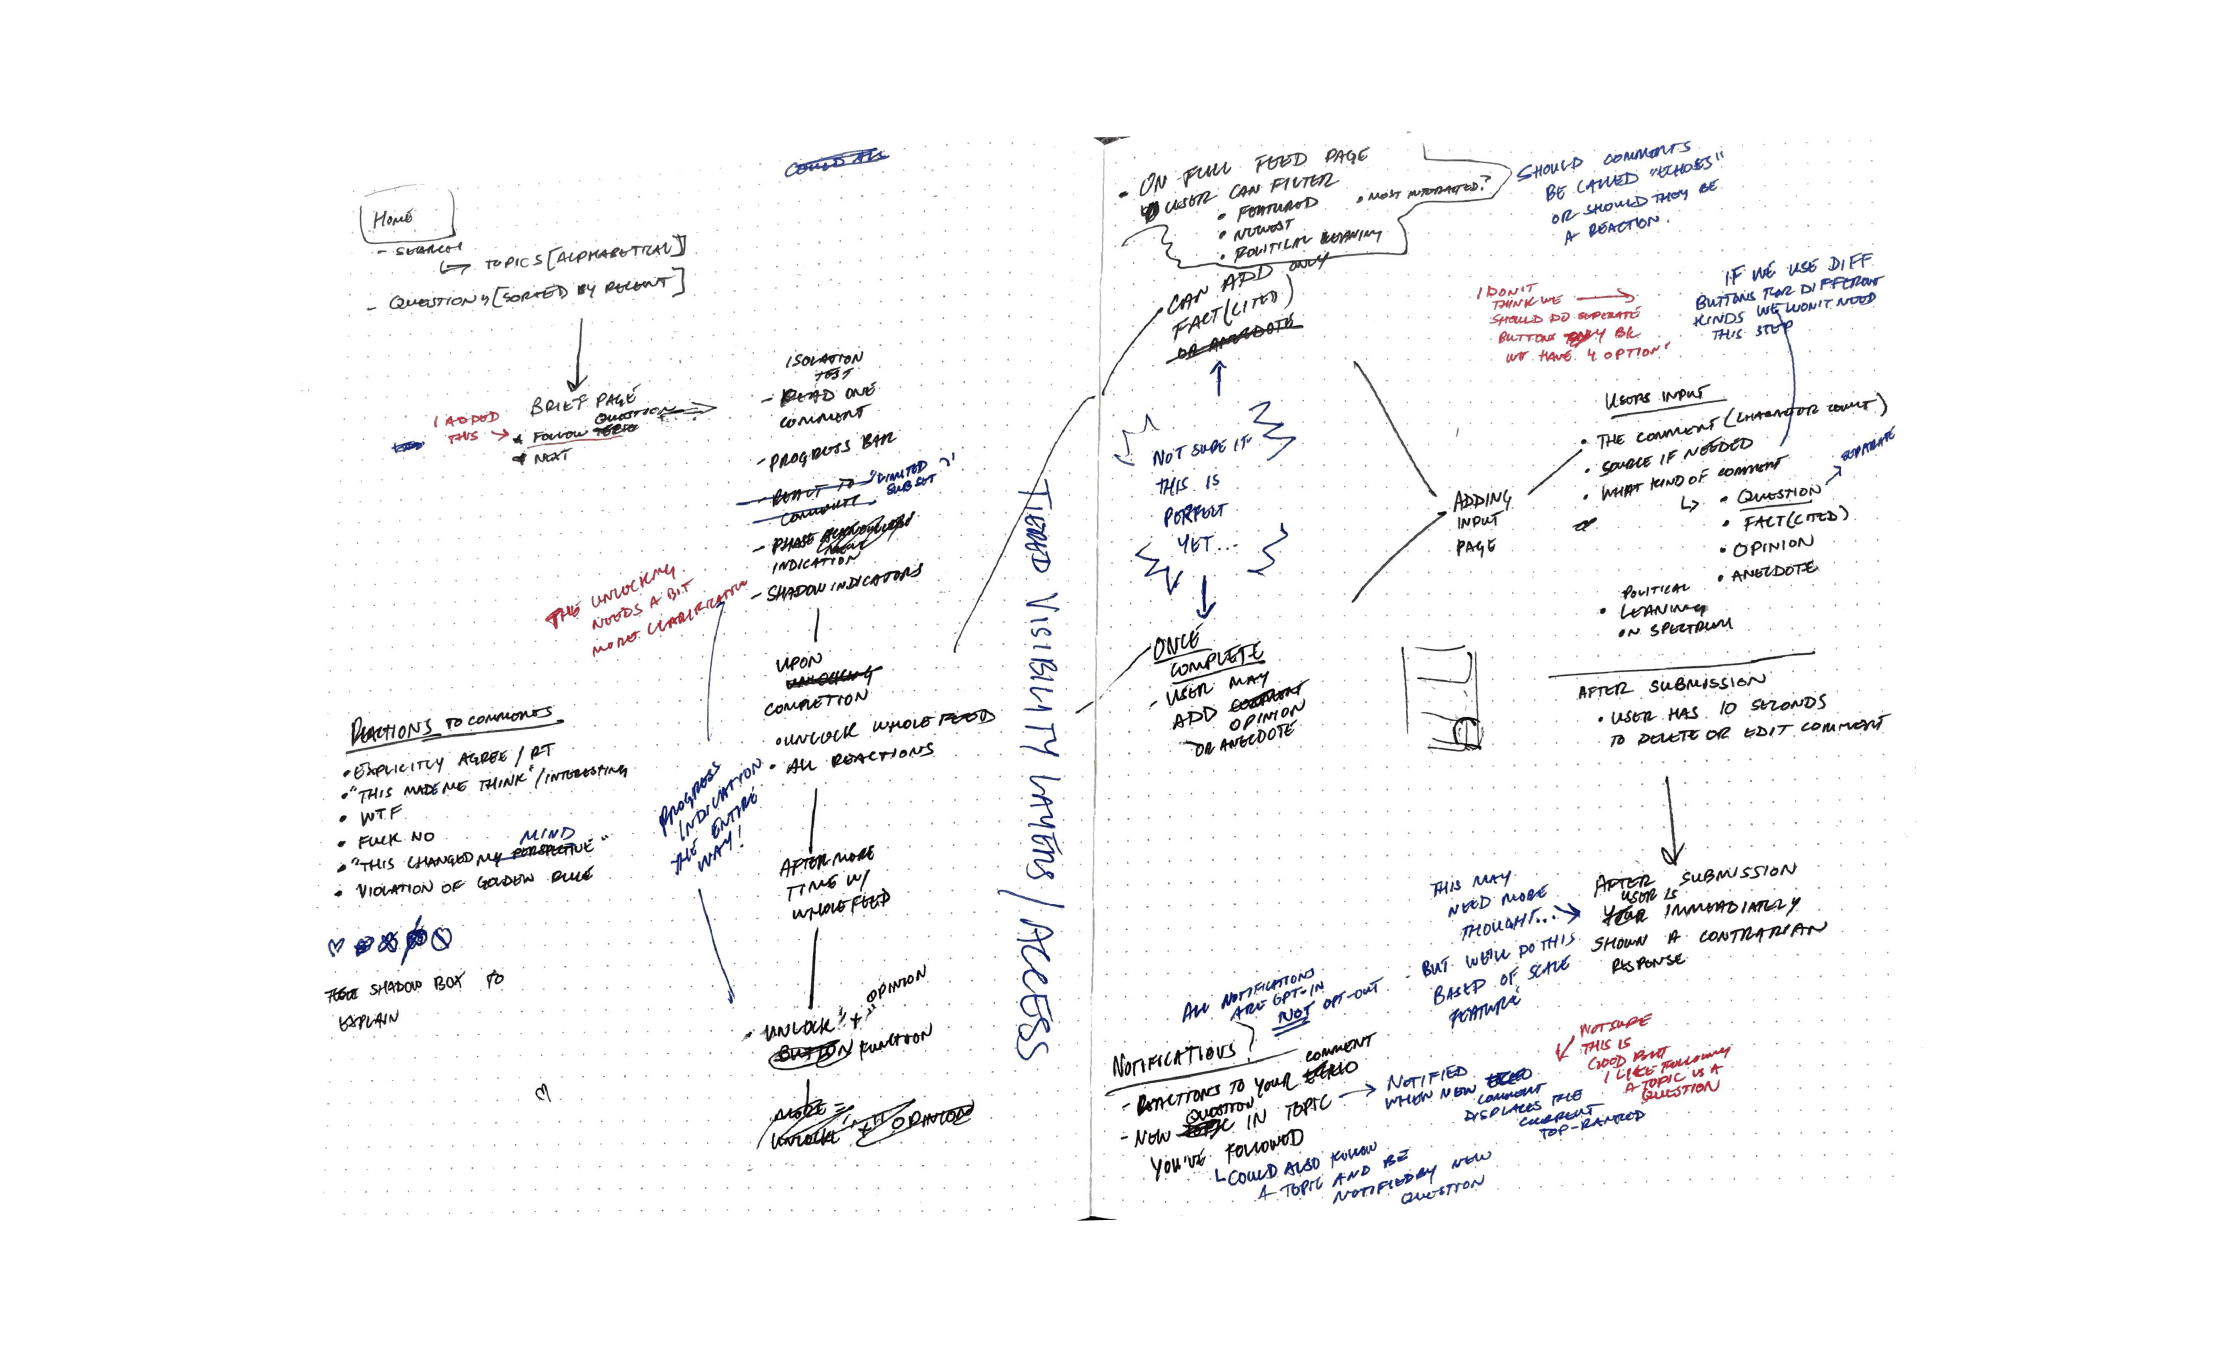 HOME
- SEARCH
↳ TOPICS [ALPHABETICAL]
- QUESTIONS [SORTED BY RECENT]
BRIEF PAGE
QUESTION
* FOLLOW TOPIC
* NEXT
I ADDED
THIS →
COULD ALL
ISOLATION
TEST
- READ ONE
COMMENT
- PROGRESS BAR
- REACT TO "LIMITED
SUBSET"
COMMENTS
- PHASE
INDICATION
- SHADOW INDICATORS
THE UNLOCKING
NEEDS A BIT
MORE CLARIFICATION
UPON
UNLOCKING
COMPLETION
• UNLOCK WHOLE FEED
• ALL REACTIONS
PROGRESS
INDICATION
THE ENTIRE
WAY!
AFTER MORE
TIME W/
WHOLE FEED
OPINION
• UNLOCK "+"
BUTTON FUNCTION
MORE =
UNLOCK "+" OPINION
REACTIONS TO COMMENTS
• EXPLICITLY AGREE / RT
• "THIS MADE ME THINK" / INTERESTING
• WTF
• FUCK NO
MIND
• "THIS CHANGED MY PERSPECTIVE"
• VIOLATION OF GOLDEN RULE
SHADOW BOX TO
EXPLAIN
TIERED VISIBILITY LAYERS / ACCESS
• ON FULL FEED PAGE
USER CAN FILTER
• FEATURED
• MOST INTERACTED?
• NEWEST
• POLITICAL LEANING
• CAN ADD ONLY
FACT (CITED)
OR ANECDOTE
SHOULD COMMENTS
BE CALLED "ECHOES"
OR SHOULD THEY BE
A REACTION.
NOT SURE IF
THIS IS
PERFECT
YET...
ONCE
COMPLETE
- USER MAY
ADD COMMENT
OPINION
OR ANECDOTE
I DON'T
THINK WE →
SHOULD DO SEPERATE
BUTTONS BC
WE HAVE 4 OPTIONS
IF WE USE DIFF
BUTTONS FOR DIFFERENT
KINDS WE WON'T NEED
THIS STEP
ADDING
INPUT
PAGE
USERS INPUT
• THE COMMENT (CHARACTER COUNT)
• SOURCE IF NEEDED
• WHAT KIND OF COMMENT
↳ • QUESTION
SEPARATE
• FACT (CITED)
• OPINION
• ANECDOTE
POLITICAL
• LEANING
ON SPECTRUM
AFTER SUBMISSION
• USER HAS 10 SECONDS
TO DELETE OR EDIT COMMENT
AFTER SUBMISSION
USER IS
IMMEDIATELY
SHOWN A CONTRARIAN
RESPONSE
THIS MAY
NEED MORE
THOUGHT... →
BUT WE'LL DO THIS
BASED OF SCALE
FEATURE
ALL NOTIFICATIONS
ARE OPT-IN
NOT OPT-OUT
NOTIFICATIONS
COMMENT
- REACTIONS TO YOUR ECHO
QUESTION
- NEW TOPIC IN TOPIC →
YOU'VE FOLLOWED
NOTIFIED
WHEN NEW ECHO
COMMENT
DISPLACES THE
CURRENT
TOP-RANKED
↳ COULD ALSO FOLLOW
A TOPIC AND BE
NOTIFIED BY NEW
QUESTION
NOT SURE
THIS IS
GOOD BUT
I LIKE FOLLOWING
A TOPIC VS A
QUESTION